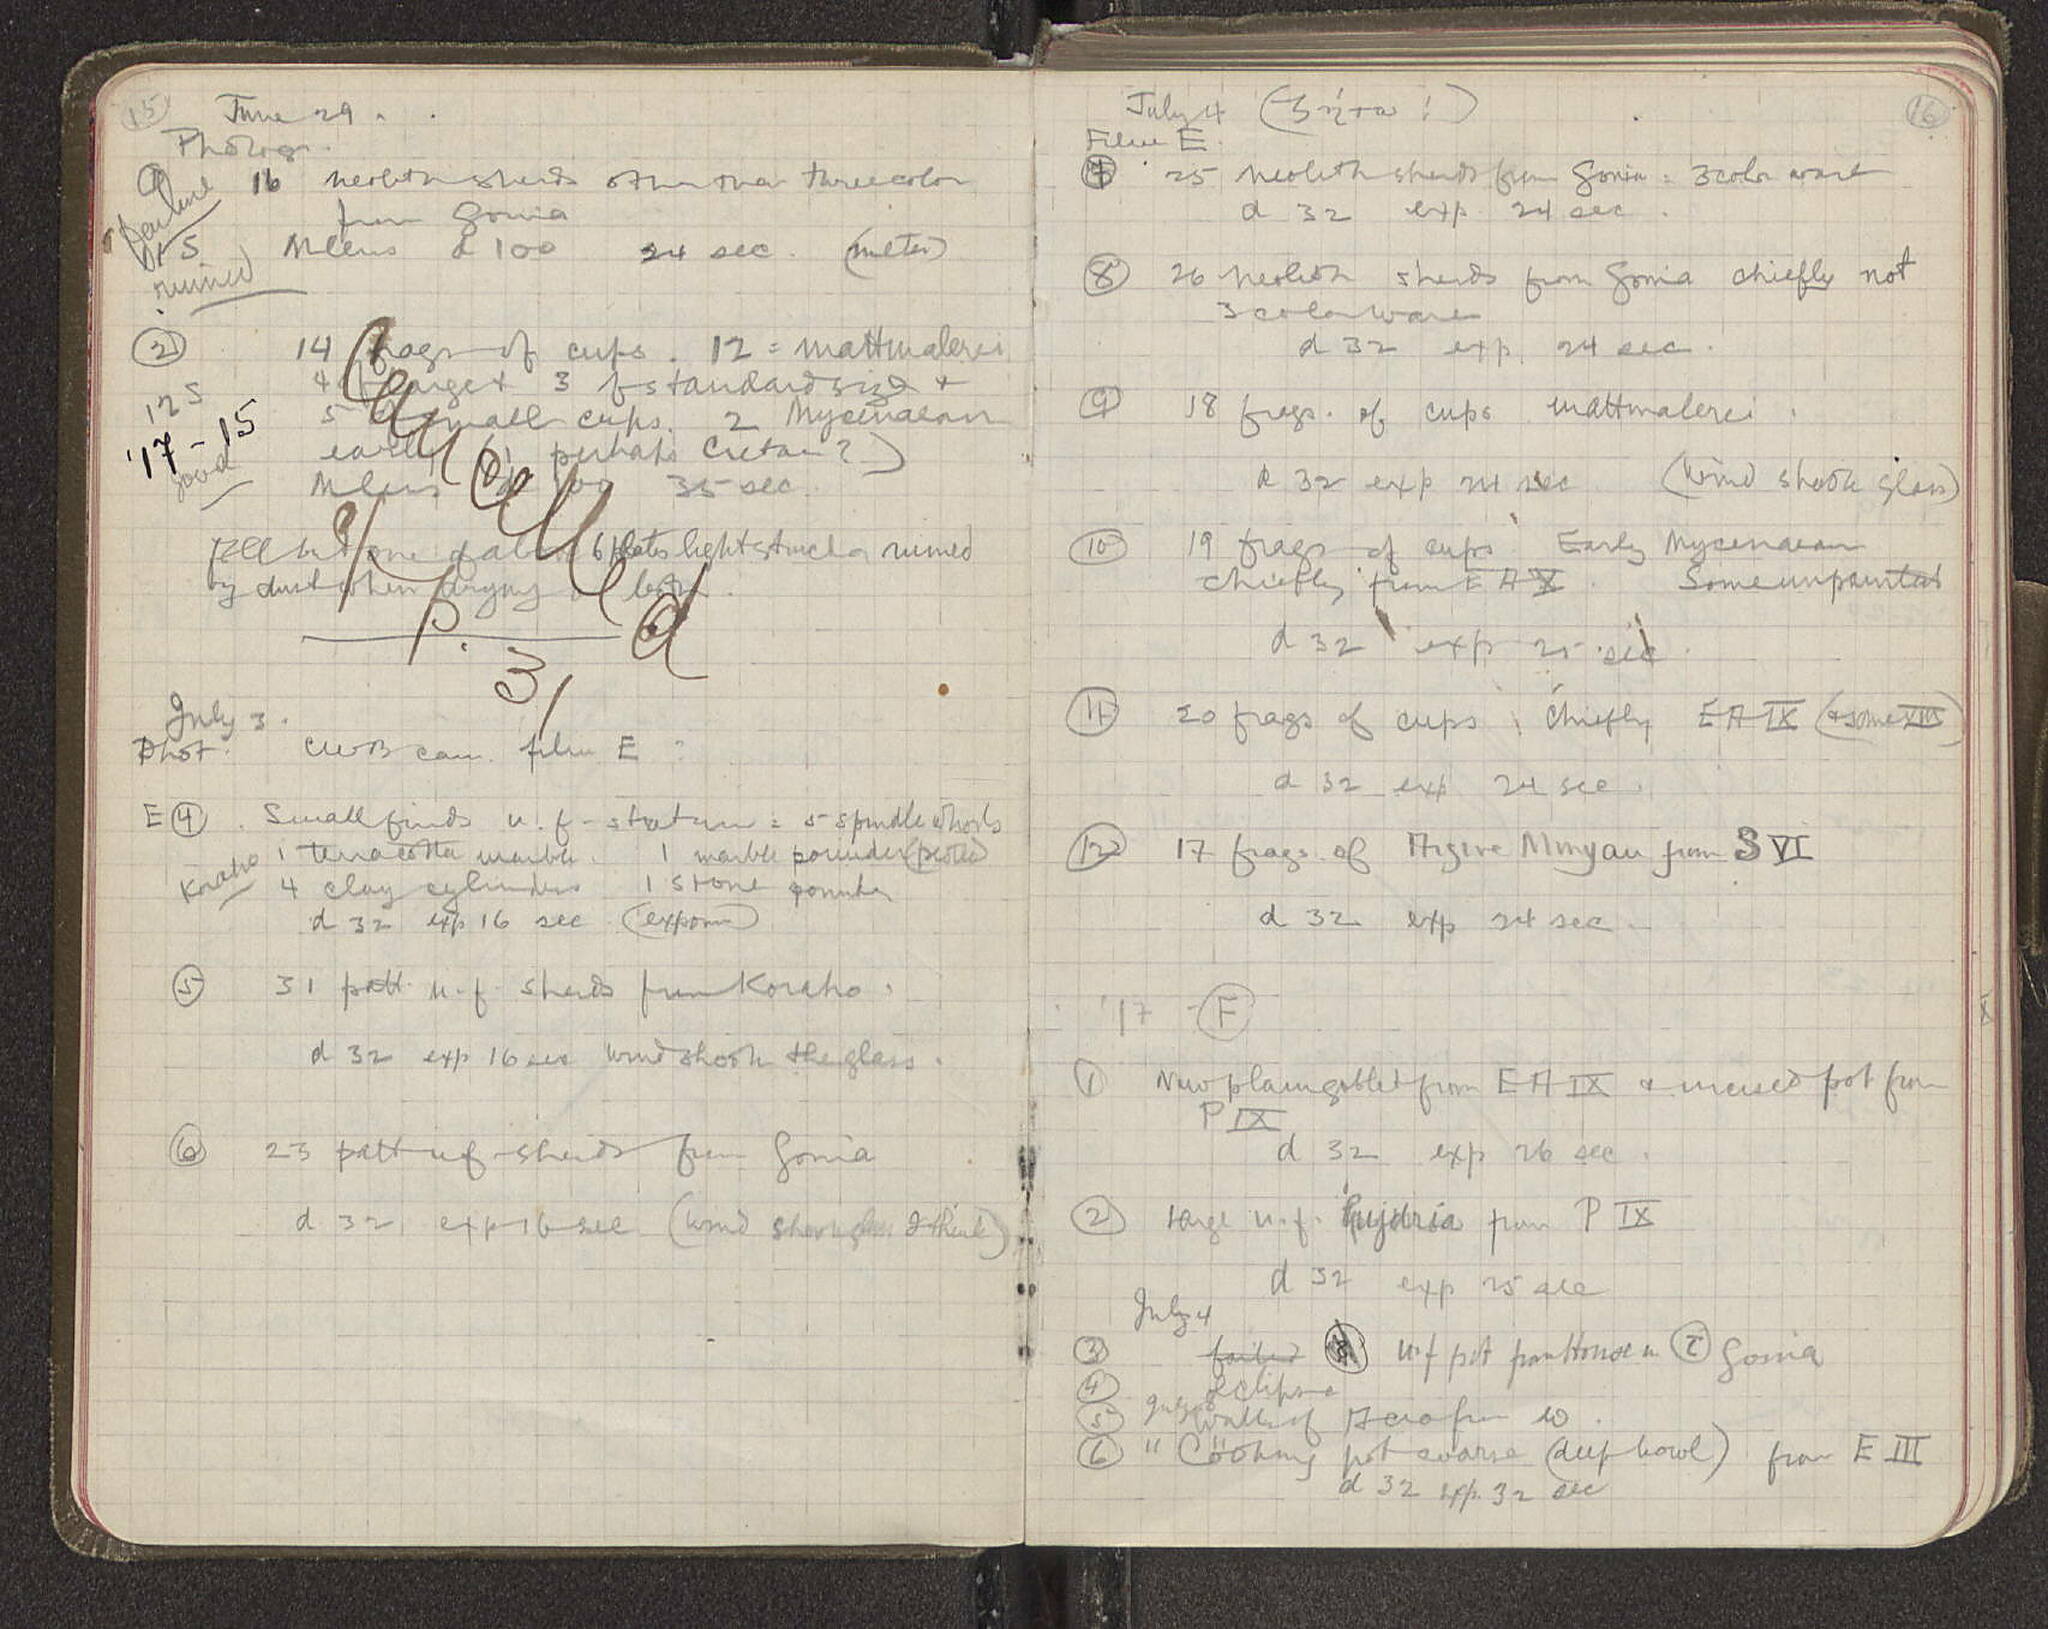 15
June 29.
Photog.
① 16 neolith sherds other than three color
failure
from Gonia
M lens d 100 24 sec. (meter)
ruined
② 14 frags of cups. 12 = mattmalerei
4 large + 3 of standard size +
125
5 small cups. 2 Mycenaean
'17-15
early (1 perhaps Cretan?)
good
M lens d 100 35 sec.
Cancelled
All but one of above 6 plates light struck or ruined
by dust when drying
p. 31
July 3.
Phot. CWB cam. film E ?
E ④ Small finds n.f. stratum = 5 spindle whorls
Korako
1 terracotta marble. 1 marble pounder
4 clay cylinders 1 stone pounder
d 32 exp 16 sec
⑤ 31 patt. n.f. sherds from Korako.
d 32 exp 16 sec wind shook the glass.
⑥ 23 patt n.f. sherds from Gonia
d 32 exp 16 sec (wind shook glass I think)
16
July 4 (ζήτω!)
Film E.
⑦ 25 neolith sherds from Gonia = 3 color ware
d 32 exp. 24 sec.
⑧ 26 neolith sherds from Gonia chiefly not
3 color ware
d 32 exp. 24 sec.
⑨ 18 frags. of cups mattmalerei.
d 32 exp 24 sec (wind shook glass)
⑩ 19 frags of cups Early Mycenaean
chiefly from EA X. Some unpainted
d 32 exp 25 sec.
⑪ 20 frags of cups chiefly EA IX (& some VIII)
d 32 exp 24 sec.
⑫ 17 frags. of Argive Minyan from S VI
d 32 exp 24 sec.
'17 - Ⓕ
① New plain goblet from EA IX & incised pot from
P IX
d 32 exp 26 sec.
② Large n.f. hydria from P IX
d 32 exp 25 sec
July 4
③ failed n.f. pot from House in Gonia
④ eclipse
⑤ Walls of Acro from W.
⑥ " Cooking pot coarse (deep bowl) from E III
d 32 exp. 32 sec